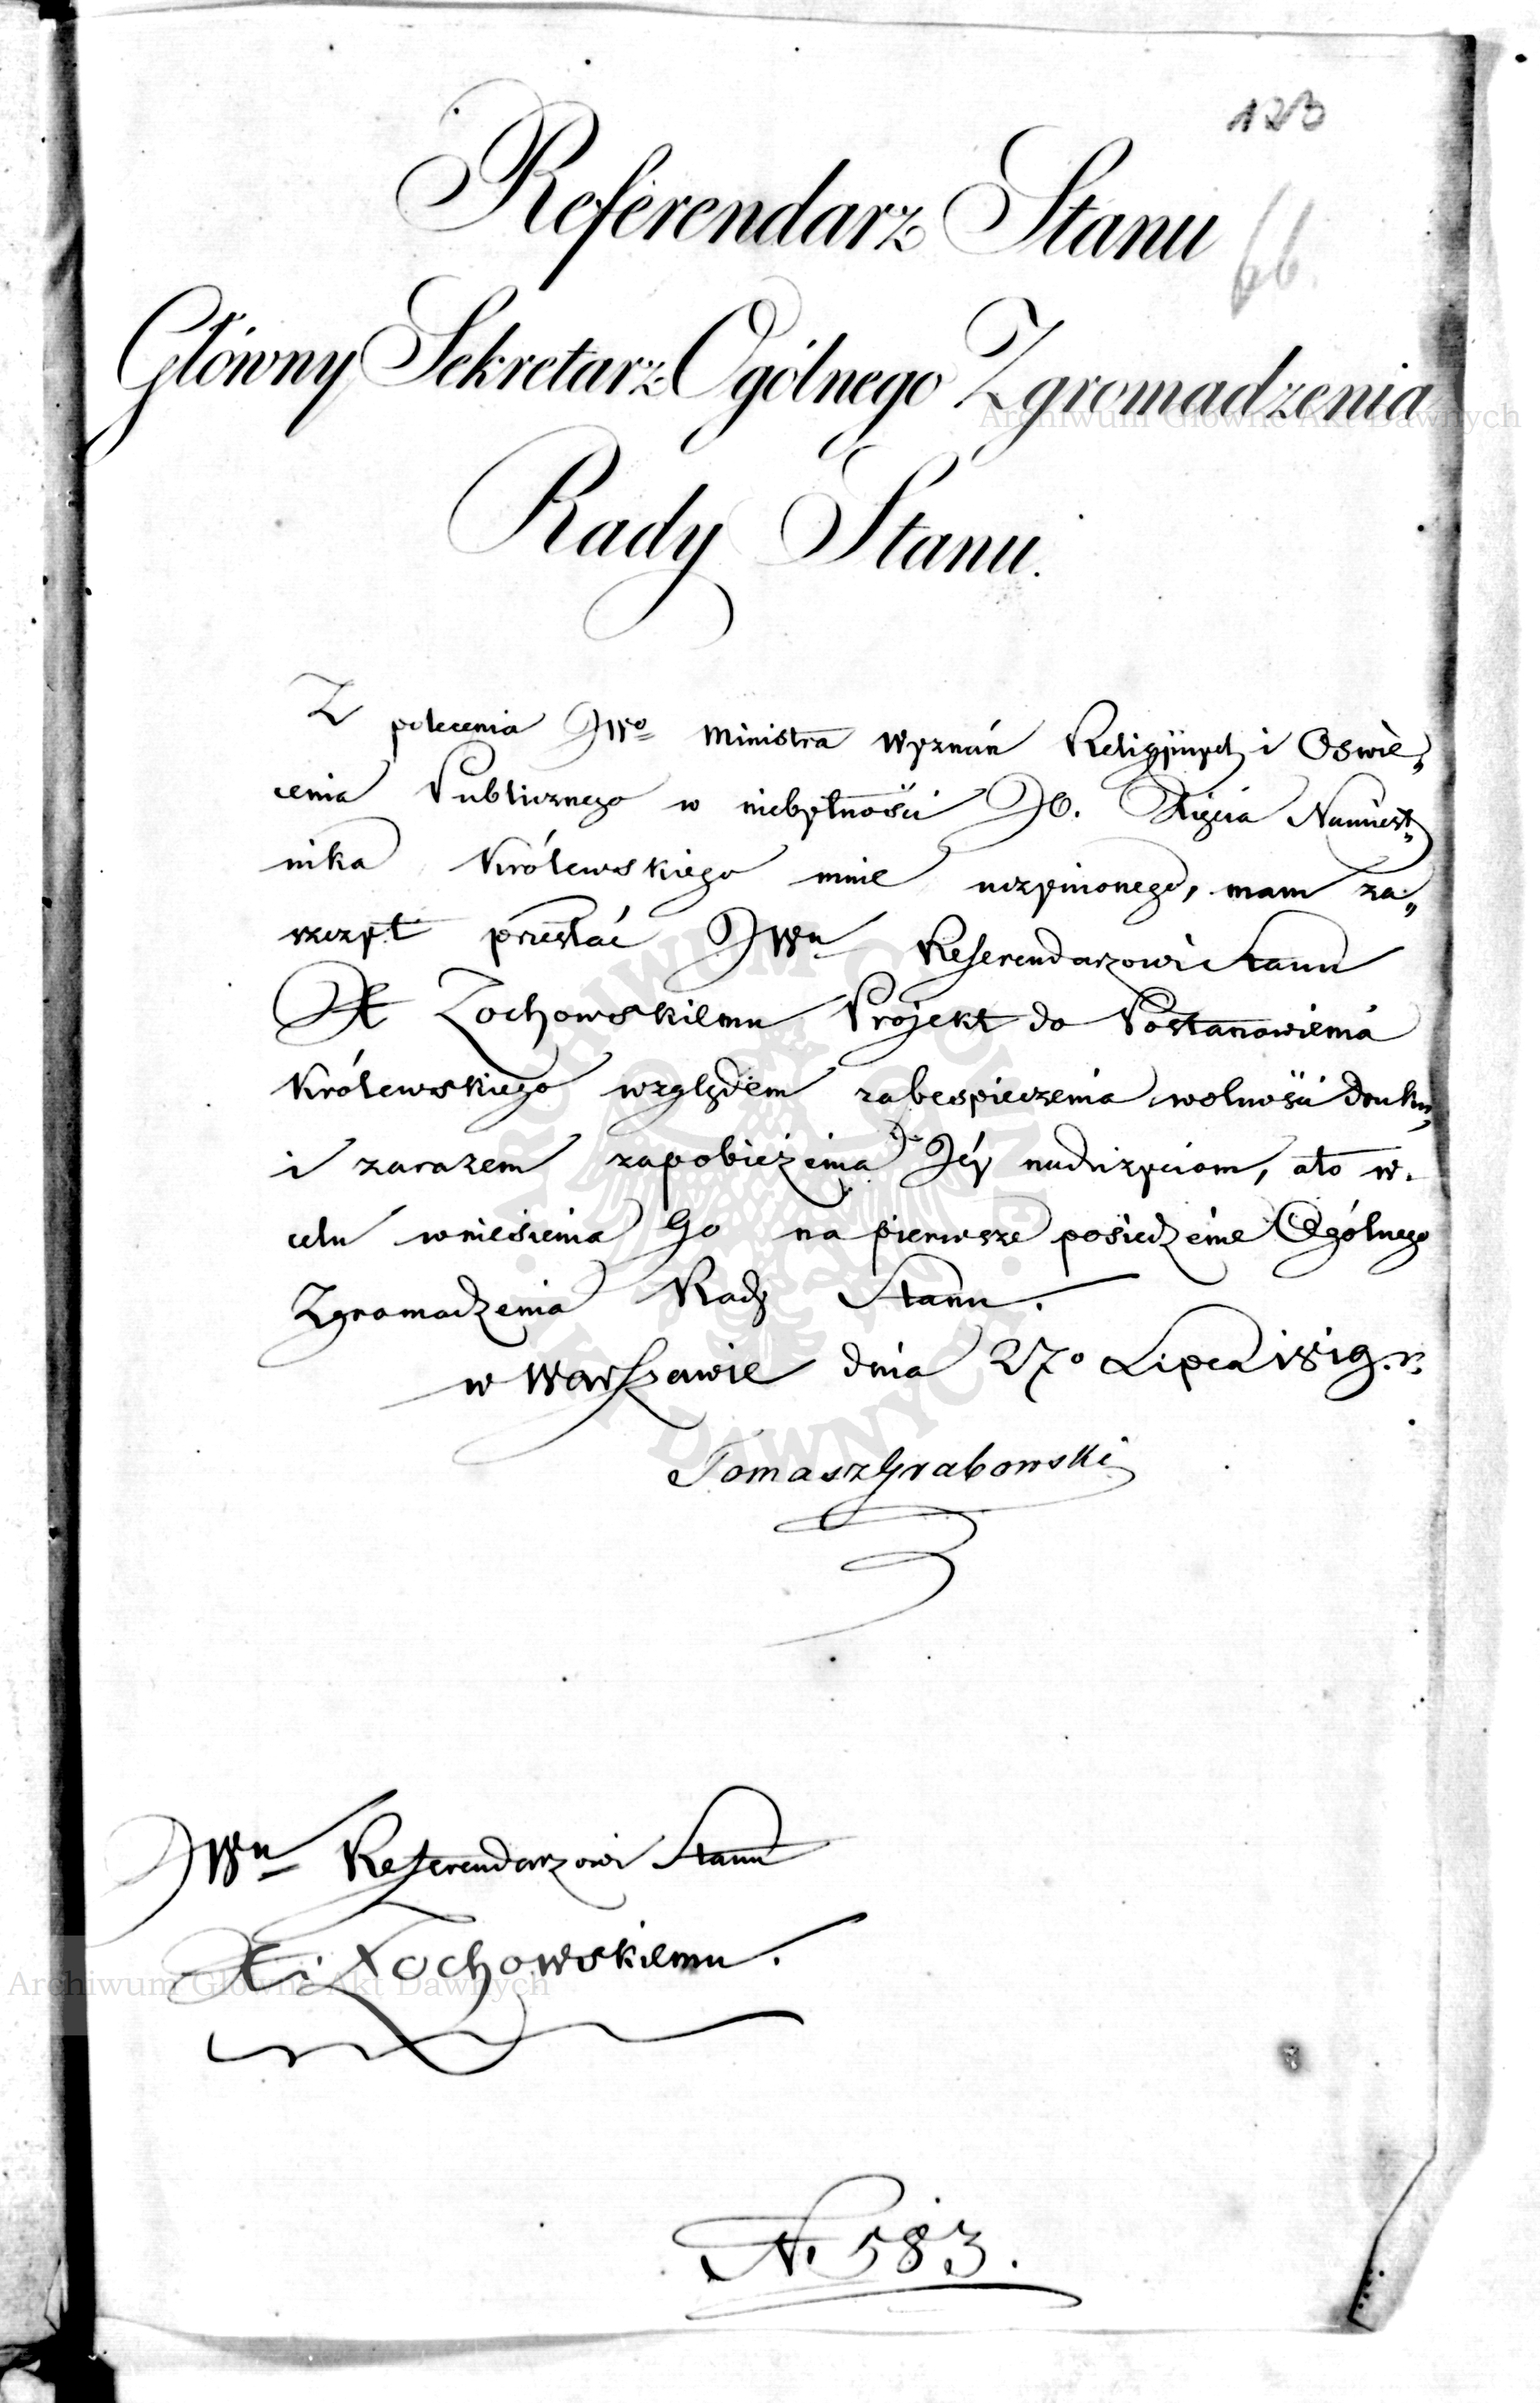 123
66.
Referendarz Stanu
Główny Sekretarz Ogólnego Zgromadzenia
Rady Stanu.
Z polecenia JWo Ministra Wyznań Religijnych i Oswie„
cenia Publicznego w niebytności JO. Xięcia Namiest„
nika Królewskiego mnie uczynionego, mam za„
szczyt przesłać JWu Referendarzowi Stanu
X Żochowskiemu Projekt do Postanowienia
Królewskiego względem zabespieczenia wolności druku„
i zarazem zapobieżenia Jéy nadużyciom, a to w
celu wniesienia Go na pierwsze posiedzenie Ogólnego
Zgromadzenia Rady Stanu.
w Warszawie dnia 27o Lipca 1819. r.
Tomasz Grabowski
JWu Referendarzowi Stanu
X Żochowskiemu.
N. 583.
Archiwum Główne Akt Dawnych
Archiwum Główne Akt Dawnych
ARCHIWUM GŁÓWNE AKT DAWNYCH